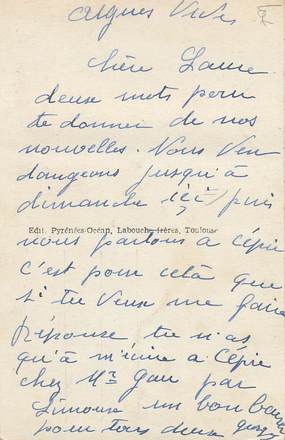 Aigues Vives
Chère Laure
deux mots pour
te donner de nos
nouvelles. Nous Ven
dangeons jusqu'à
dimanche ici puis
Edit. Pyrénées-Océan, Labouche frères, Toulouse
nous partons a Cépie
c'est pour celà que
si tu veux me faire
réponse tu n'as
qu'à m'écrire a Cépie
chez Mr Gau par
Limoux un bon baiser
pour tous deux